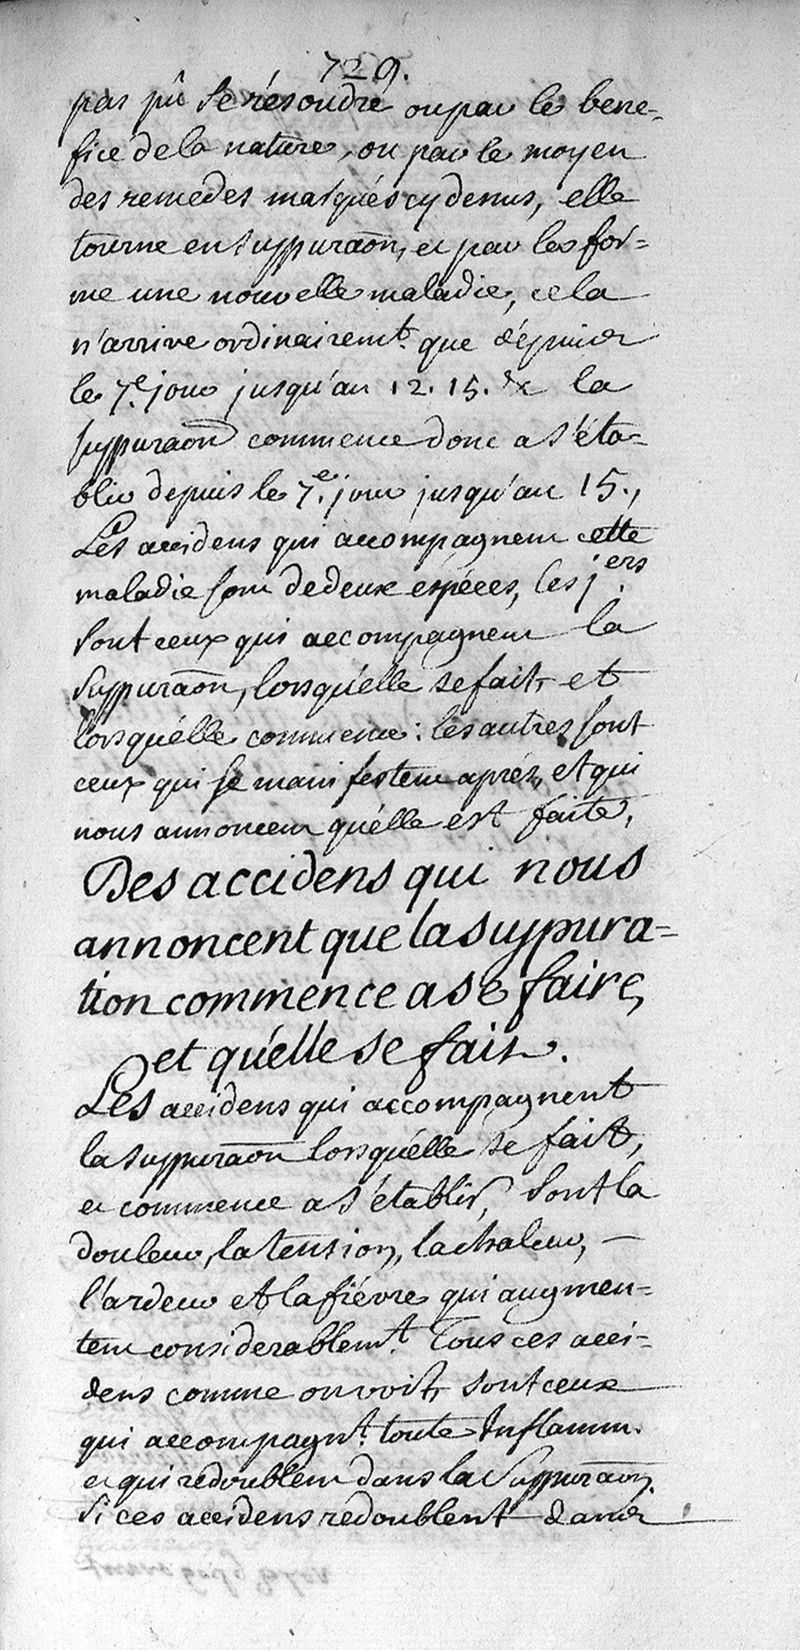 729.
pas pû se résoudre ou par le bene-
fice de la nature, ou par le moyen
des remedes marqués cy dessus, elle
tourne en suppuraõn, et par la for=
me une nouvelle maladie, cela
n'arrive ordinairemt. que dépuis
le 7.e jour jusqu'au 12. 15. &c la
suppuraõn commence donc a s'éta=
blir depuis le 7.e jour jusqu'au 15.,
Les accidens qui accompagnent cette
maladie sont de deux espéces, les j.ers
sont ceux qui accompagnent la
suppuraõn, lorsqu'elle se fait, et
lorsqu'elle commence: les autres sont
ceux qui se manifestent aprés, et qui
nous annoncent qu'élle est faite,
Des accidens qui nous
annoncent que la suppura=
tion commence a se faire,
et qu'élle se fait.
Les accidens qui accompagnent
la suppuraõn lorsqu'élle se fait,
et commence a s'établir, sont la
douleur, la tension, la chaleur, —
l'ardeur et la fiévre qui augmen=
tent considerablemt. Tous ces acci=
dens comme on voit, sont ceux
qui accompagnt. toute Inflamm.
et qui redoublent dans la Suppuraõn.
Si ces accidens redoublent dans